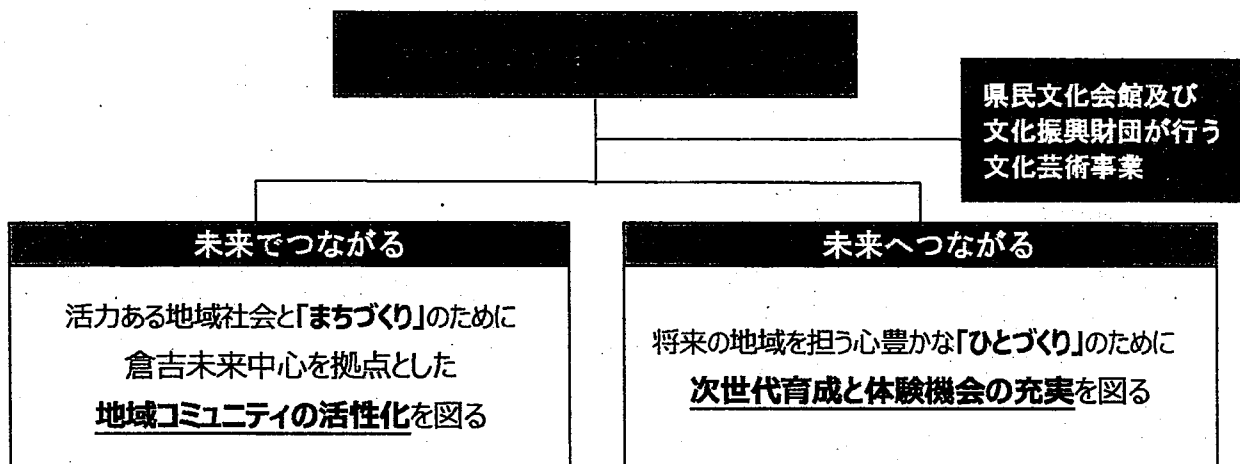 県民文化会館及び
文化振興財団が行う
文化芸術事業
未来でつながる
活力ある地域社会と「まちづくり」のために
倉吉未来中心を拠点とした
地域コミュニティの活性化を図る
未来へつながる
将来の地域を担う心豊かな「ひとづくり」のために
次世代育成と体験機会の充実を図る